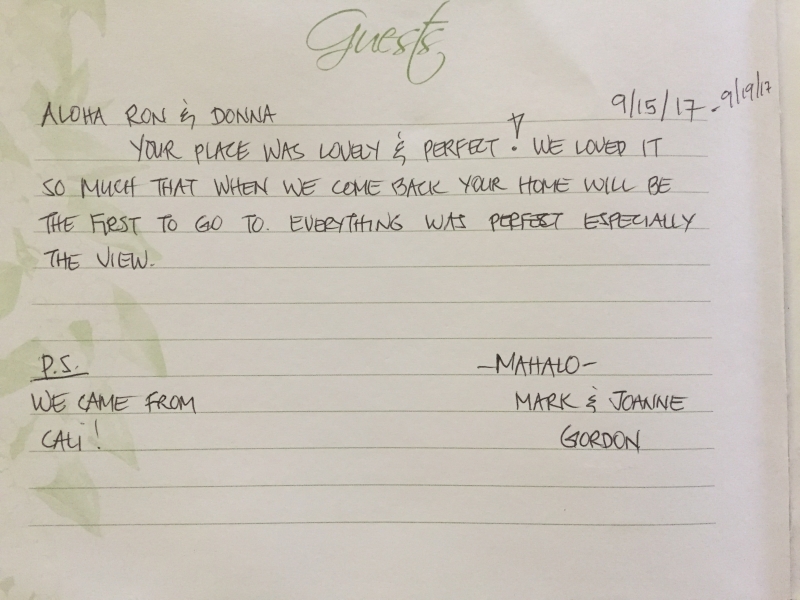 Guests
ALOHA RON & DONNA 9/15/17 - 9/19/17
YOUR PLACE WAS LOVELY & PERFECT! WE LOVED IT
SO MUCH THAT WHEN WE COME BACK YOUR HOME WILL BE
THE FIRST TO GO TO. EVERYTHING WAS PERFECT ESPECIALLY
THE VIEW.
P.S. -MAHALO-
WE CAME FROM MARK & JOANNE
CALI! GORDON